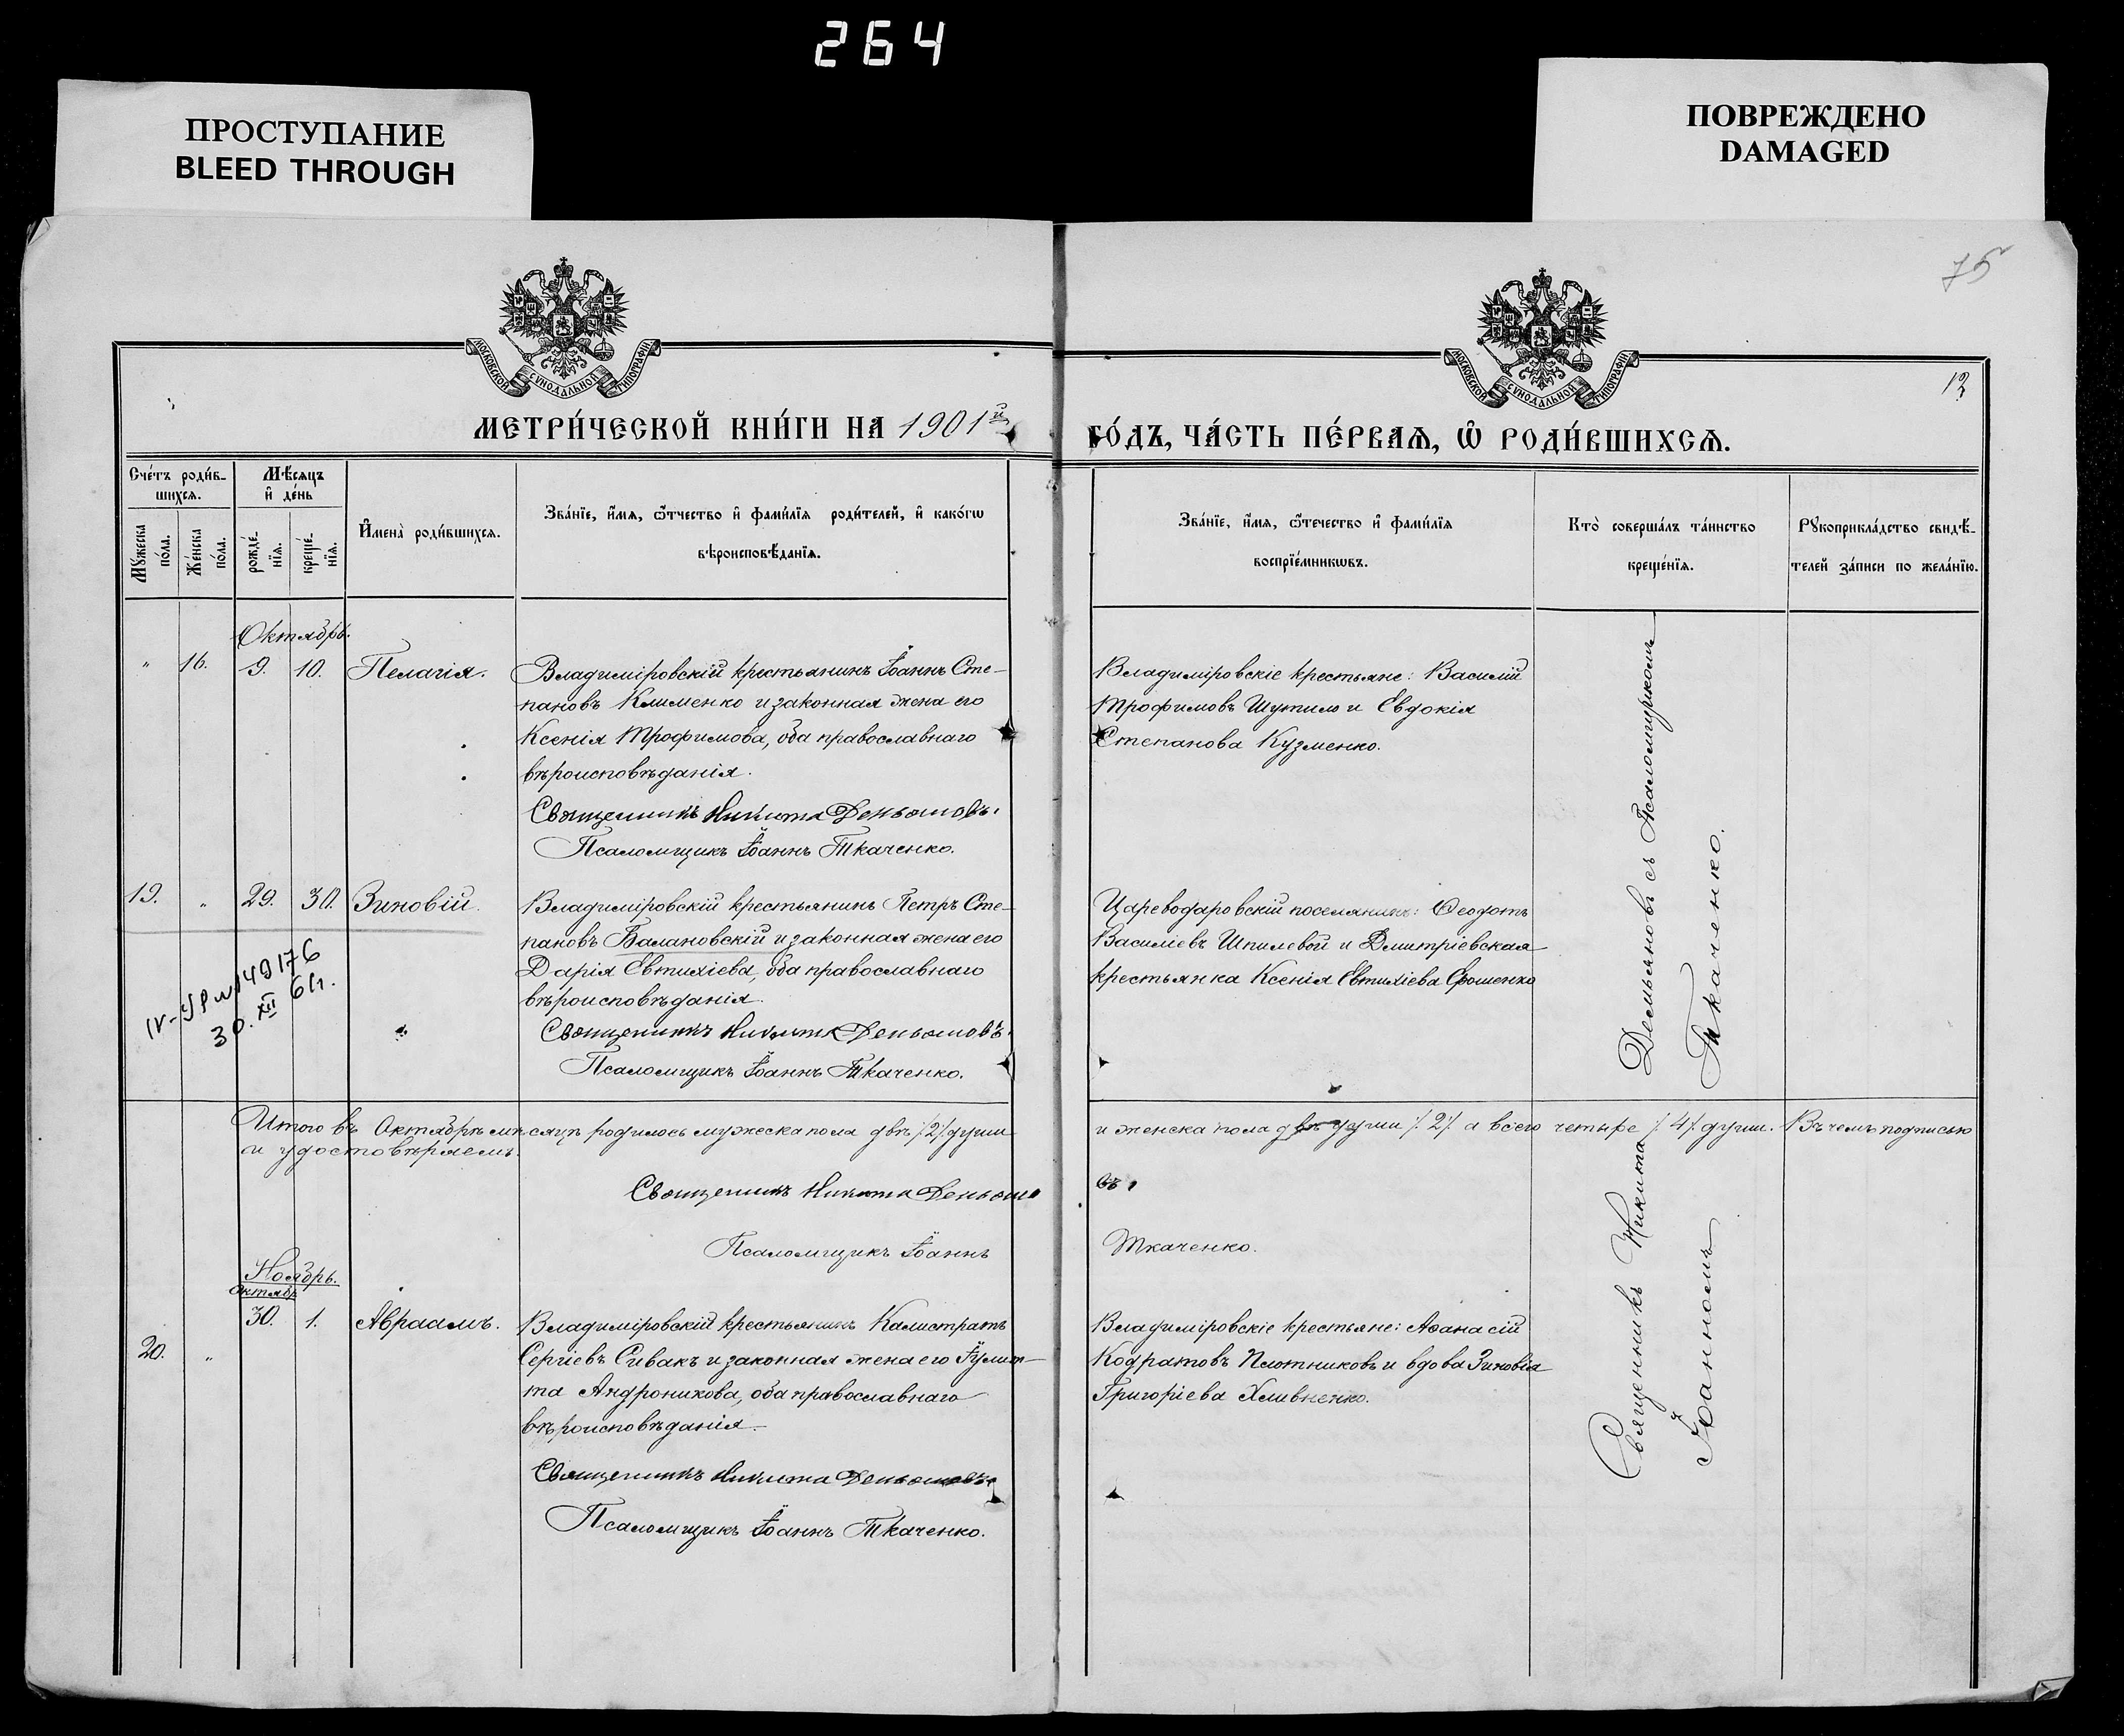 264
ПРОСТУПАНИЕ
BLEED THROUGH
ПОВРЕЖДЕНО
DAMAGED
75
МОСКОВСКОЙ СѴНОДАЛЬНОЙ ТИПОГРАФІИ
МОСКОВСКОЙ СѴНОДАЛЬНОЙ ТИПОГРАФІИ
13
МЕТРИ́ЧЕСКОЙ КНИ́ГИ НА 1901й
ГО́ДЪ, ЧА́СТЬ ПЕ́РВАѦ, Ѡ҆ РОДИ́ВШИХСѦ.
Сче́тъ роди́в-
шихсѧ.
Мꙋжеска
по́ла.
Же́нска
по́ла.
Мѣ́сѧцъ
и҆ де́нь
рожде́-
нїѧ.
креще́-
нїѧ.
И҆мена̀ роди́вшихсѧ.
Зва́нїе, и҆́мѧ, ѻ҆́тчество и҆ фами́лїѧ роди́телей, и҆ како́гѡ
вѣроисповѣ́данїѧ.
Зва́нїе, и҆́мѧ, ѻ҆́течество и҆ фами́лїѧ
воспрїе́мникѡвъ.
Кто̀ соверша́лъ та́инство
креще́нїѧ.
Рꙋкоприкла́дство свидѣ́-
телей за́писи по жела́нїю.
Октябрь.
" 16. 9. 10. Пелагія.
Владиміровскій крестьянинъ Іоаннъ Сте-
пановъ Клименко и законная жена его
Ксенія Трофимова, оба православнаго
вѣроисповѣданія.
Священникъ Никита Демьяновъ.
Псаломщикъ Іоаннъ Ткаченко.
Владиміровскіе крестьяне: Василій
Трофимовъ Шутило и Евдокія
Степанова Кузменко.
19. " 29. 30. Зиновій.
Владиміровскій крестьянинъ Петръ Сте-
пановъ Балановскій и законная жена его
Дарія Евтихіева, оба православнаго
вѣроисповѣданія.
Священникъ Никита Демьяновъ.
Псаломщикъ Іоаннъ Ткаченко.
Цареводаровскій поселянинъ: Ѳеодотъ
Василіевъ Шпилевой и Дмитріевская
крестьянка Ксенія Евтихіева Ерошенко
149176
30. XII 61г.
Итого въ Октябрѣ мѣсяцѣ родилось мужеска пола двѣ /2/ души
и женска пола двѣ души /2/ а всего четыре /4/ души. Въ чемъ подписью
и удостовѣряемъ.
Священникъ Никита Демьяно
въ.
Псаломщикъ Іоаннъ
Ткаченко.
Ноябрь.
Октябр
20. " 30. 1. Авраамъ.
Владиміровскій крестьянинъ Калистратъ
Сергіевъ Сивакъ и законная жена его Іулит-
та Андроникова, оба православнаго
вѣроисповѣданія.
Священникъ Никита Демьяновъ.
Псаломщикъ Іоаннъ Ткаченко.
Владиміровскіе крестьяне: Аѳанасій
Кодратовъ Плотниковъ и вдова Зиновія
Григоріева Хливненко.
Священникъ Никита Демьяновъ съ Псаломщикомъ
Іоанномъ Ткаченко.